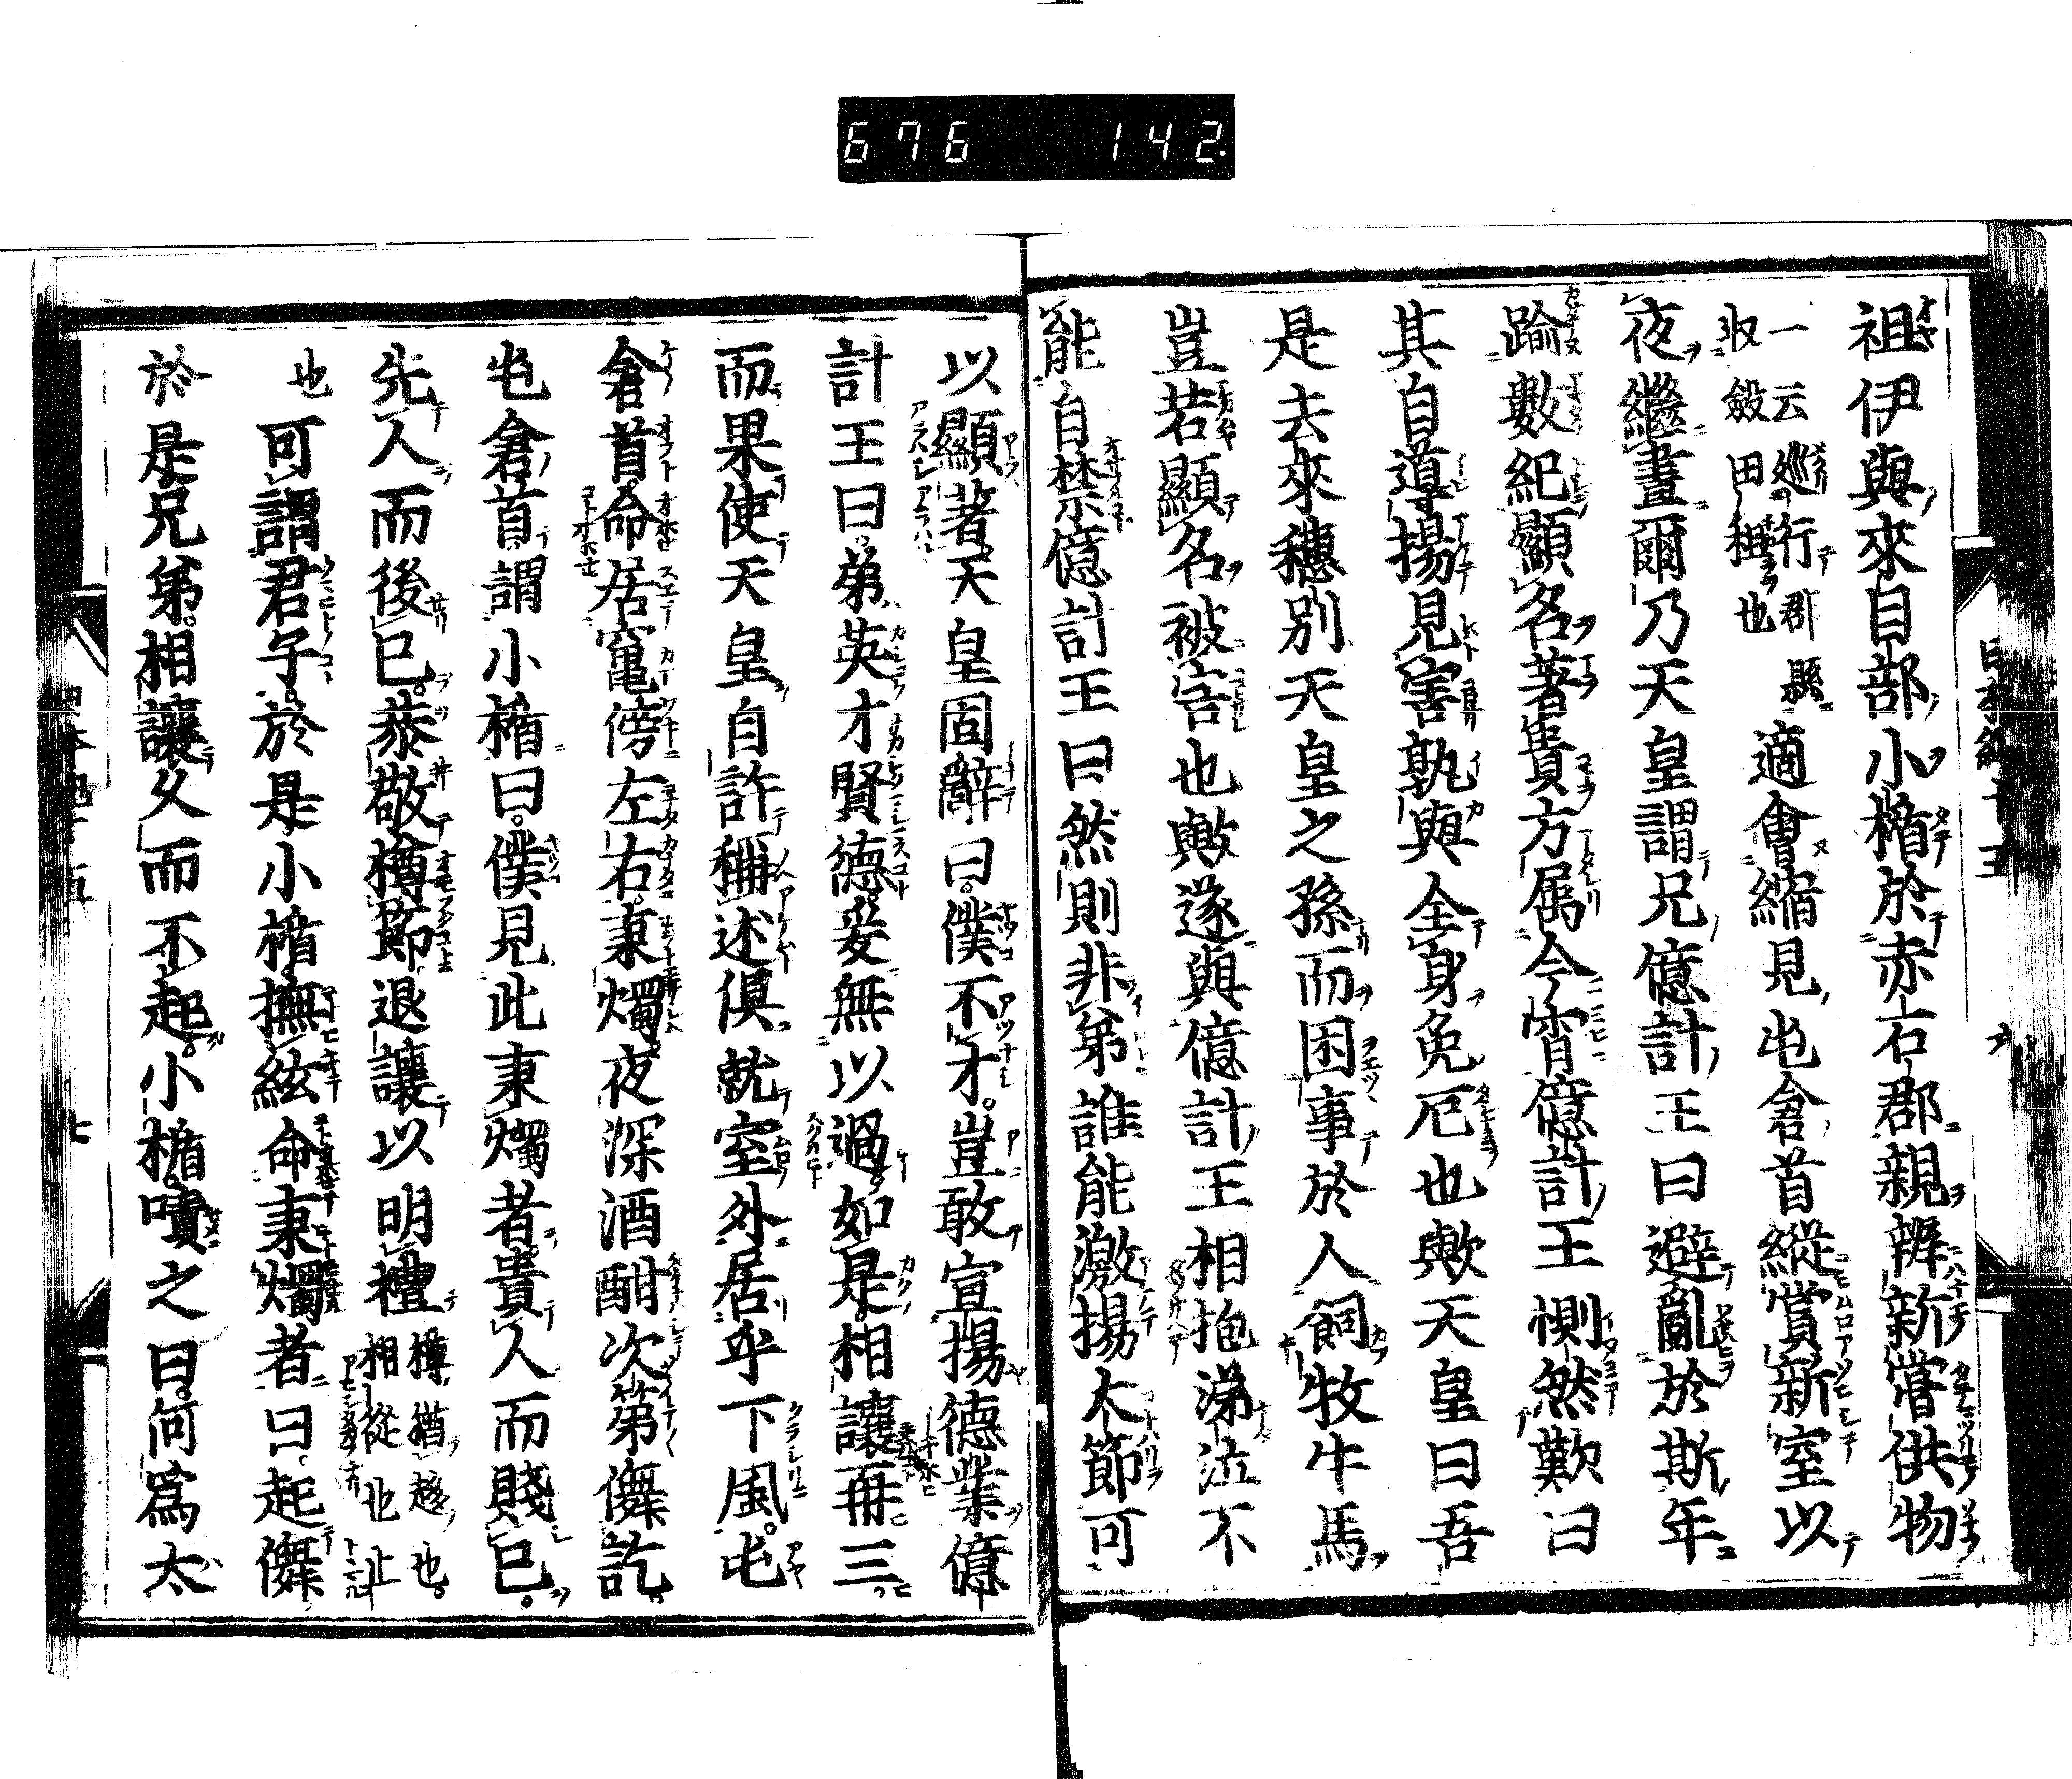 676 142.
祖伊與來目部小楯於赤石郡親辨新嘗供物
一云巡行郡縣
収斂田租也
適會縮見屯倉首縱賞新室以
夜繼晝爾乃天皇謂兄億計王曰避亂於斯年
踰數紀顯名著貴方属今宵億計王惻然歎曰
其自導揚見害孰與全身免厄也歟天皇曰吾
是去來穗別天皇之孫而困事於人飼牧牛馬
豈若顯名被害也歟遂與億計王相抱涕泣不
能自禁億計王曰然則非弟誰能激揚大節可
以顯著天皇固辭曰僕不才豈敢宣揚德業億
計王曰弟英才賢德爰無以過如是相讓再三
而果使天皇自許稱述俱就室外居乎下風屯
倉首命居竈傍左右秉燭夜深酒酣次第儛訖
屯倉首謂小楯曰僕見此秉燭者貴人而賤已
先人而後已恭敬樽節退讓以明禮
樽猶趍也
相從也止
也
可謂君子於是小楯撫絃命秉燭者曰起儛
於是兄弟相讓久而不起小楯嘖之曰何爲太
日本紀十五 六
日本紀十五 七